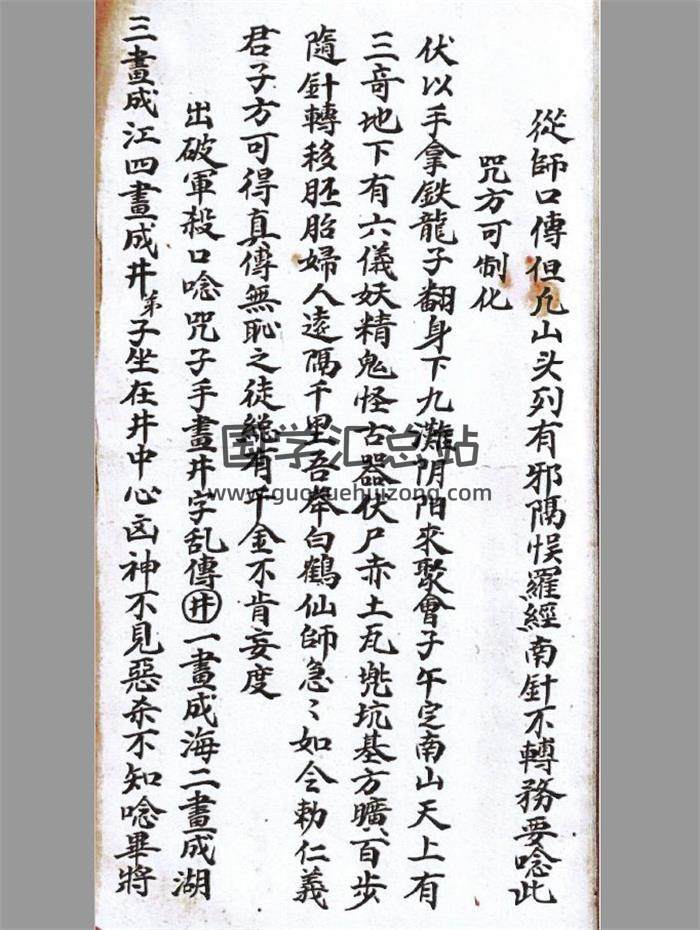 從師口傳但凢山头列有邪隔悮羅經南針不轉務要唸此
咒方可制化
伏以手拿鉄龍子翻身下九灘阴阳來聚會子午定南山天上有
三奇地下有六儀妖精鬼怪古器伏尸赤土瓦坑基方曠百步
隨針轉移胚胎婦人遠隔千里吾奉白鶴仙師急〻如令勅仁義
君子方可得真傳無恥之徒縱有千金不肯妄度
出破軍殺口唸咒子手畫井字乱傳井一畫成海二畫成湖
三畫成江四畫成井弟子坐在井中心凶神不見惡杀不知唸畢將
国学汇总站
www.guoxuehuizong.com